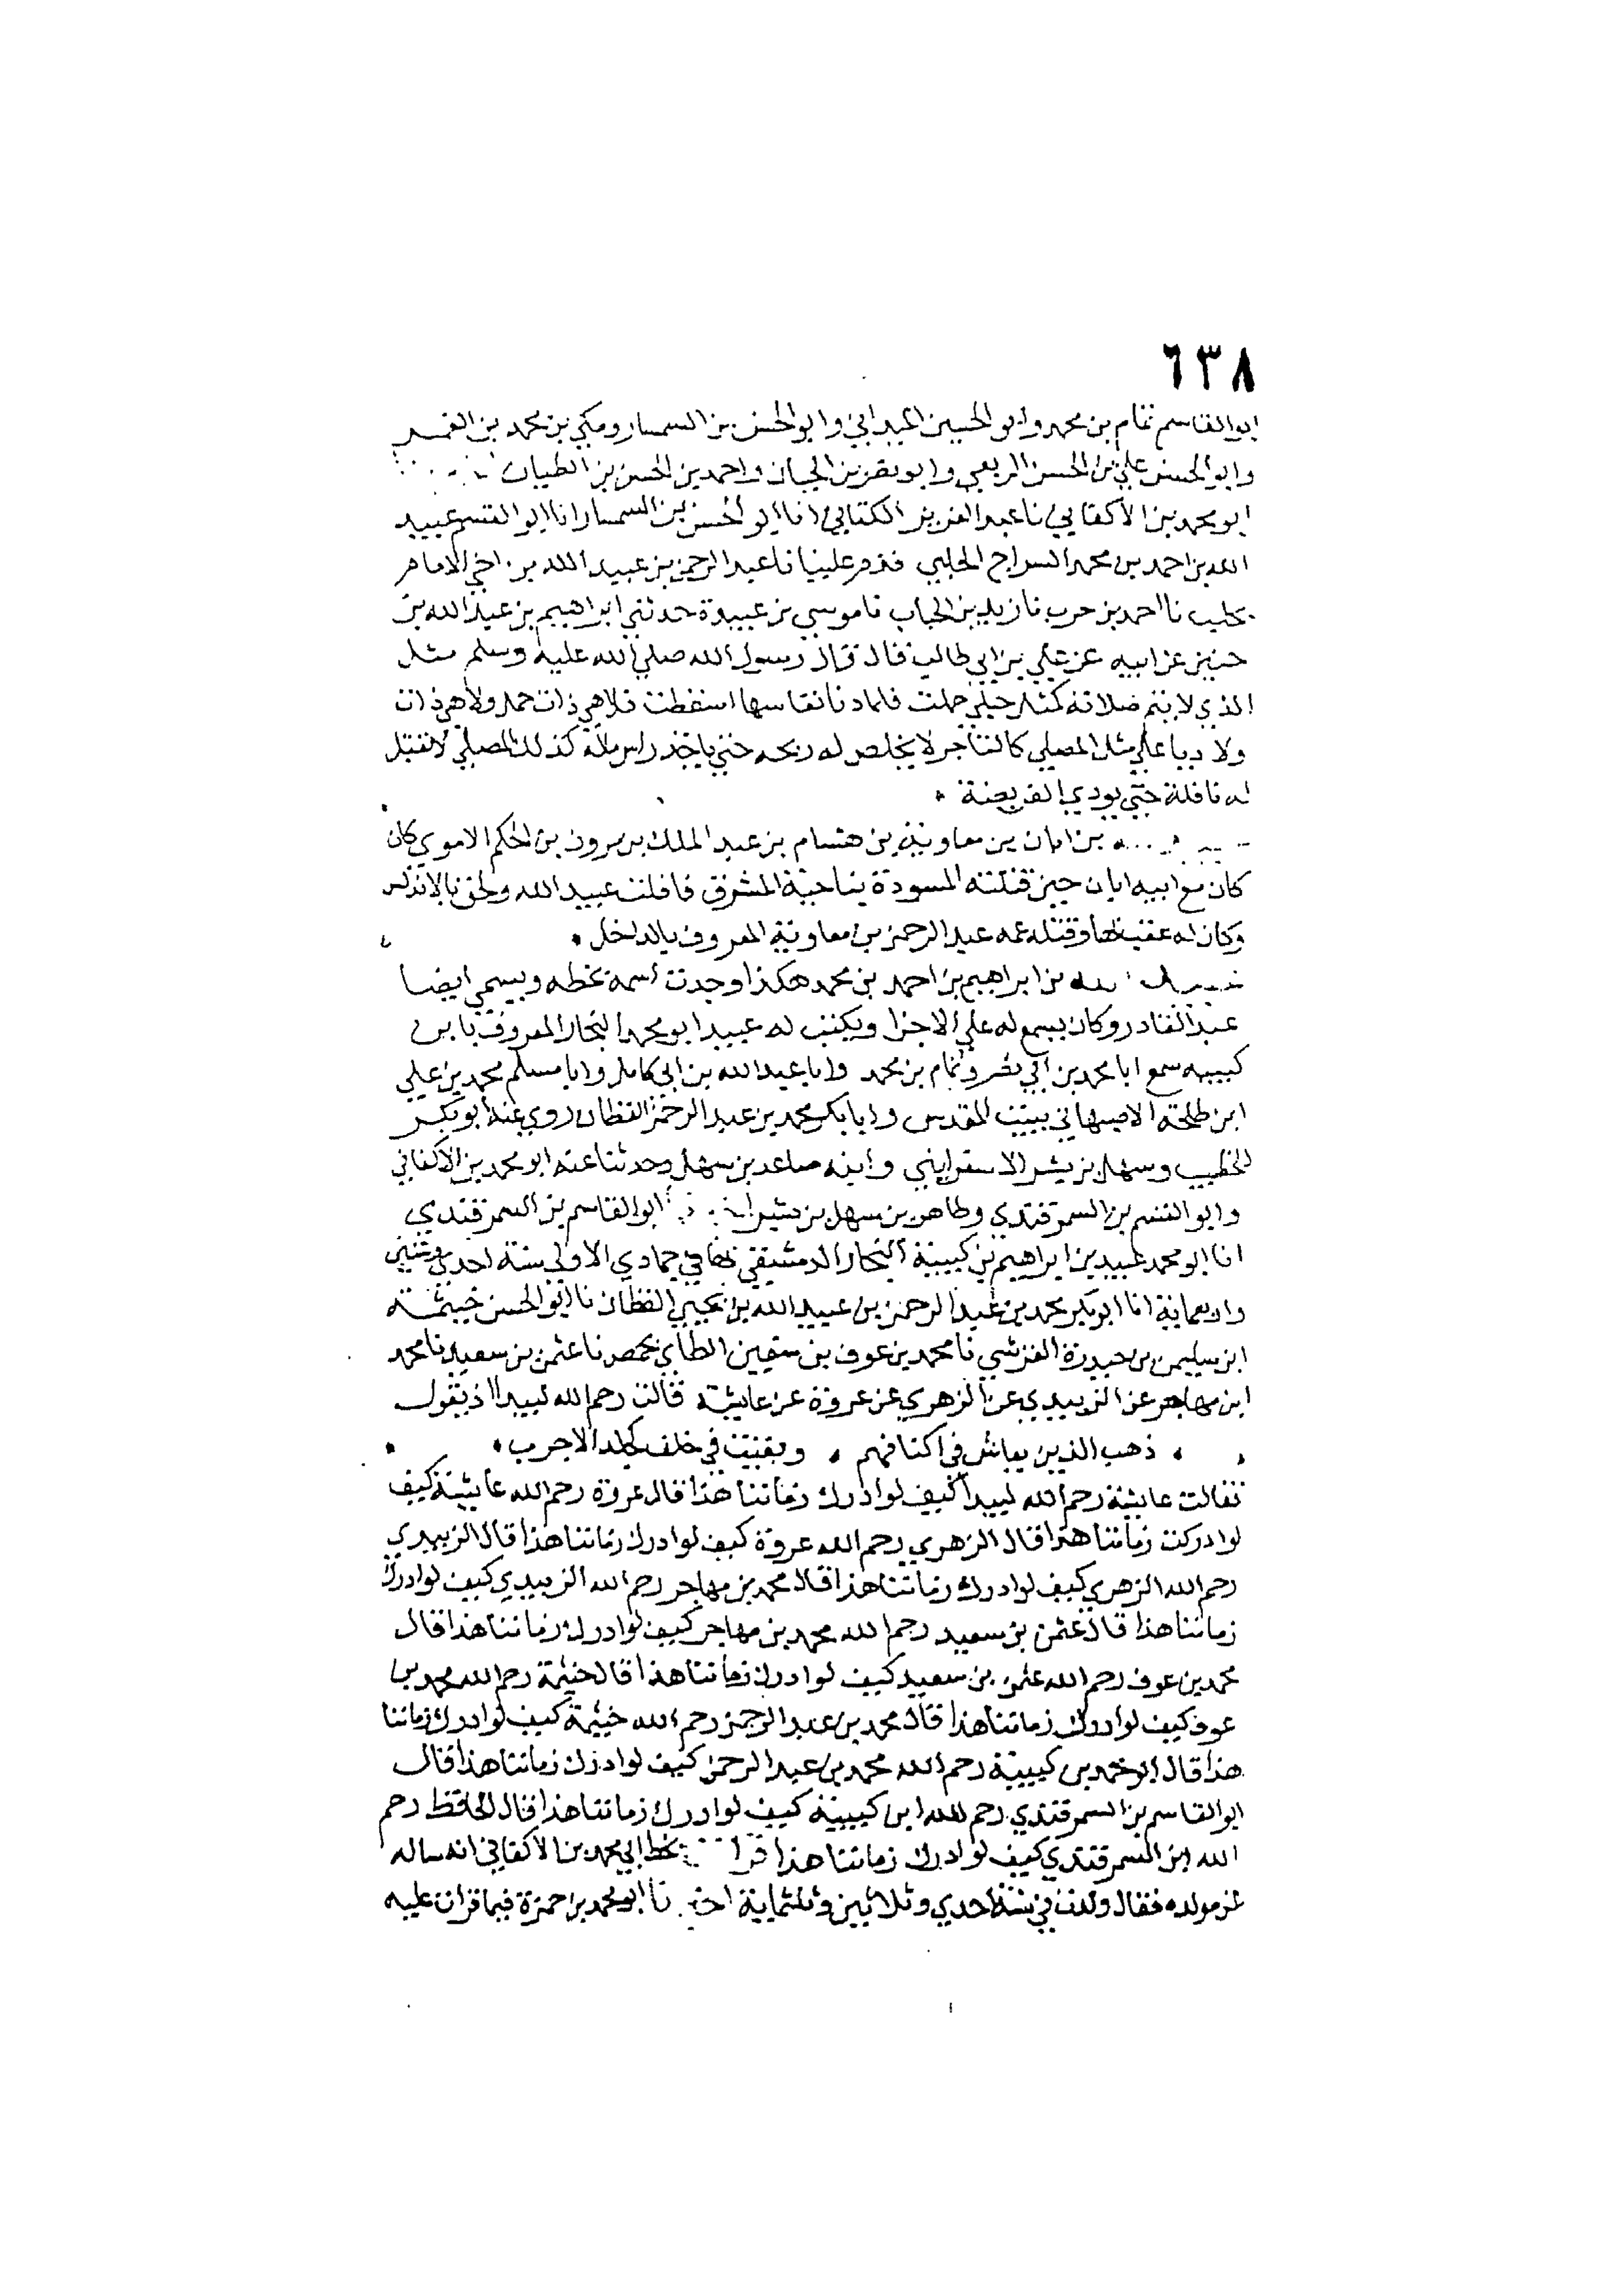 ٦٣٨
ابو القاسم تمام بن محمد وابو الحسين الميداني وابو الحسن بن السمسار ومكي بن محمد بن الغمر
وابو الحسن علي بن الحسن الربعي وابو نصر بن الجبان واحمد بن الحسن بن الطيان
ابو محمد بن الاكفاني نا عبد العزيز الكتاني انا ابو الحسن بن السمسار انا ابو القسم عبيد
الله بن احمد بن محمد السراج الحلبي قدم علينا نا عبد الرحمن بن عبيد الله بن اخي الامام
بحلب نا احمد بن حرب نا زيد بن الحباب نا موسى بن عبيدة حدثني ابراهيم بن عبد الله بن
حنين عن ابيه عن علي بن ابي طالب قال قال رسول الله صلي الله عليه وسلم مثل
الذي لا يتم صلاته كمثل حبلى حملت فلما دنا نفاسها اسقطت فلا هي ذات حمل ولا هي ذات
ولا ديا علي مثل المصلي كالتاجر لا يخلص له ربحه حتي ياخذ راس ماله كذلك المصلي لا تقبل
له نافلة حتي يودي الفريضة
بن ابان بن معاوية بن هشام بن عبد الملك بن مرون بن الحكم الاموي كان
كان مع ابيه ابان حين قتلته المسودة بناحية المشرق فافلت عبيد الله ولحق بالاندلس
وكان له عقب بها وقتله عمه عبد الرحمن بن معاوية المعروف بالداخل
الله بن ابراهيم بن احمد بن محمد هكذا وجدت اسمه بخطه ويسمي ايضا
عبد القادر وكان يسمع له علي الاجزا ويكتب له عبيد ابو محمد النجار المعروف بابن
كبيبه سمع ابا محمد بن ابي نصر وتمام بن محمد وابا عبد الله بن ابي كامل وابا مسلم محمد بن علي
ابن طلحة الاصبهاني ببيت المقدس وابا بكر محمد بن عبد الرحمن القطان روي عنه ابو بكر
الخطيب وسهل بن بشر الاسفرايني وابنه صاعد بن سهل وحدثنا عنه ابو محمد بن الاكفاني
وابو القسم بن السمرقندي وطاهر بن سهل بن بشر ابو القاسم بن السمرقندي
انا ابو محمد عبيد بن ابراهيم بن كبيبة النجار الدمشقي بها في جمادي الاولي سنة احدى وستين
واربعماية انا ابو بكر محمد بن عبد الرحمن بن عبيد الله بن يحيي القطان نا ابو الحسن خيثمة
ابن سليمن بن حيدرة القرشي نا محمد بن عوف بن سفين الطاي بحمص نا عثمن بن سعيد نا محمد
ابن مهاجر عن الزبيدي عن الزهري عن عروة عن عايشة قالت رحم الله لبيدا اذ يقول
ذهب الذين يعاش في اكنافهم وبقيت في خلف كجلد الاجرب
فقالت عايشة رحم الله لبيدا كيف لو ادرك زماننا هذا قال عروة رحم الله عايشة كيف
لو ادركت زماننا هذا قال الزهري رحم الله عروة كيف لو ادرك زماننا هذا قال الزبيدي
رحم الله الزهري كيف لو ادرك زماننا هذا قال محمد بن مهاجر رحم الله الزبيدي كيف لو ادرك
زماننا هذا قال عثمن بن سعيد رحم الله محمد بن مهاجر كيف لو ادرك زماننا هذا قال
محمد بن عوف رحم الله عثمن بن سعيد كيف لو ادرك زماننا هذا قال خيثمة رحم الله محمد بن
عوف كيف لو ادرك زماننا هذا قال محمد بن عبد الرحمن رحم الله خيثمة كيف لو ادرك زماننا
هذا قال ابو محمد بن كبيبة رحم الله محمد بن عبد الرحمن كيف لو ادرك زماننا هذا قال
ابو القاسم بن السمرقندي رحم الله ابن كبيبة كيف لو ادرك زماننا هذا قال الحافظ رحم
الله ابن السمرقندي كيف لو ادرك زماننا هذا قرا بخط ابي محمد بن الاكفاني انه ساله
عن مولده فقال ولدت في سنة احدي وثلاثين وثلثماية نا ابو محمد بن حمزة فيما قرات عليه